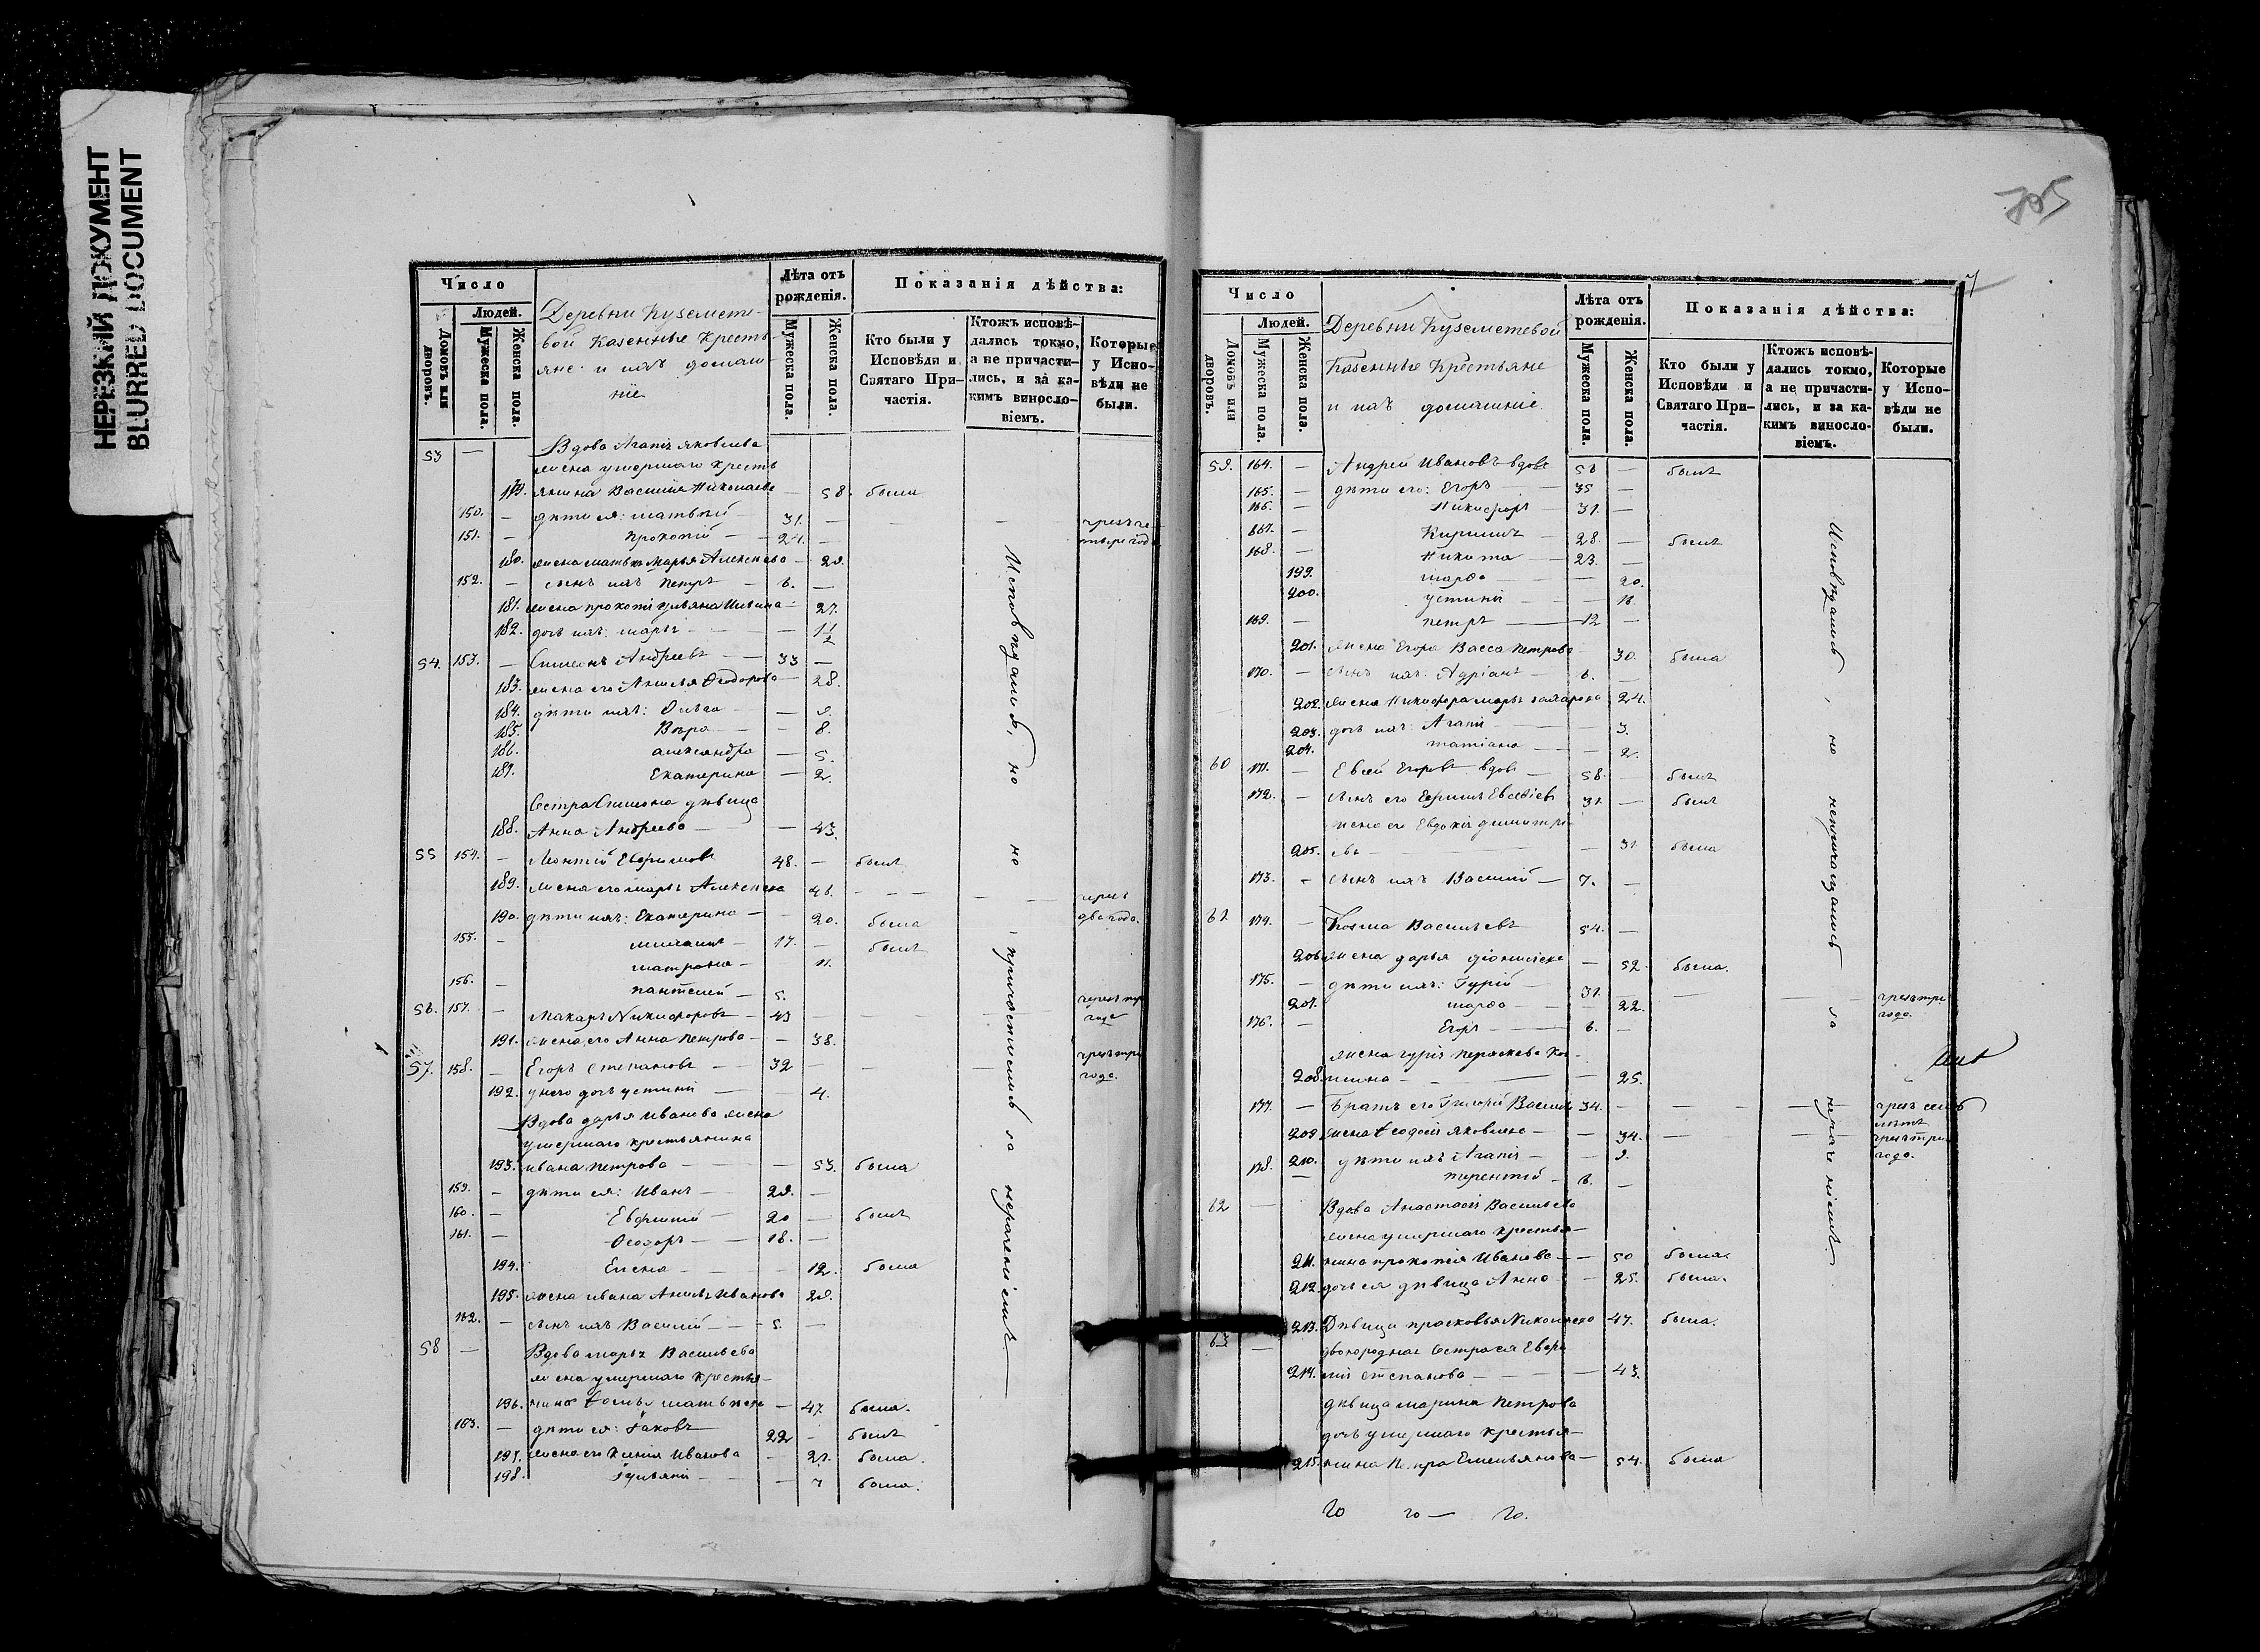 НЕРЕЗКИЙ ДОКУМЕНТ
BLURRED DOCUMENT
Число
Людей.
Домовъ или дворовъ.
Мужеска пола.
Женска пола.
Деревни Куземете-
вой Казенные Кресть-
яне и ихъ домаш-
ніе
Лѣта отъ рожденія.
Мужеска пола.
Женска пола.
Показанія дѣйства:
Кто были у Исповѣди и Святаго При-частія.
Ктожъ исповѣ-дались токмо, а не причасти-лись, и за ка-кимъ винословіемъ.
Которые у Испо-вѣди не были.
53 — Вдова Агапія Яковлева
жена умершаго кресть
179. янина Василія Николаева — 58. была
150. — дѣти ея: Матвѣй — 31. —
151. — Прокопій — 24. —
180. жена Матвѣя Марья Алексѣева — 29.
152. — сынъ ихъ Петръ — 6. —
181. жена Прокопія Ульяна Ильина — 27.
182. дочь ихъ: Марья — 1/2
54. 153. — Симеонъ Андреевъ — 33 —
183. жена его Анисья Ѳеодорова — 28.
184. дѣти ихъ: Ольга — 9.
185. Вѣра — 8.
186. Александра — 5.
187. Екатерина — 2.
Сестра Симеона дѣвица
188. Анна Андреева — 43.
55 154. — Леонтій Евфимовъ 48. — былъ
189. жена его Марья Алексѣева 46. — — — чрезъ
190. дѣти ихъ: Екатерина — 20. была два года.
155. — 17. — былъ
Матрона — 11.
156. — Пантелей — 5.
56. 157. — Макаръ Никифоровъ — 43 — — года
191. жена его Анна Петрова — 38.
57. 158. — Егоръ Степановъ — 32 — — чрезъ три года.
192. у него дочь Устинія — 4.
Вдова Дарья Иванова жена
умершаго крестьянина
193. Ивана Петрова — 53. была
159. — дѣти ея: Иванъ — 29. —
160. — Евфимій — 20 — былъ
161. — Ѳеодоръ — 18. —
194. Елена — 12. была
195. жена Ивана Анисья Иванова 29.
162. — сынъ ихъ Василій — 5. —
58 — Вдова Марья Васильева
жена умершаго крестья-
196. нина Матвѣева — 47. была.
163. — дѣти ея: Іаковъ 22 — былъ
197. жена его Ксенія Иванова — 21. была.
198. Іуліанія — 7 была.
Исповѣдались, но не причастились за нераченіемъ
705
7
Число
Людей.
Домовъ или дворовъ.
Мужеска пола.
Женска пола.
Деревни Куземетевой
Казенные Крестьяне
и ихъ домашніе.
Лѣта отъ рожденія.
Мужеска пола.
Женска пола.
Показанія дѣйства:
Кто были у Исповѣди и Святаго При-частія.
Ктожъ исповѣ-дались токмо, а не причасти-лись, и за ка-кимъ винословіемъ.
Которые у Испо-вѣди не были.
59. 164. — Андрей Ивановъ вдовъ 58 — былъ
165. — дѣти его: Егоръ — 35 —
166. — Никифоръ — 31. —
167. — Кириллъ — 28. — былъ
168. — Никита — 23. —
199. Марѳа — 20.
200. Устинія — 18.
169. — Петръ — 12 —
201. жена Егора Васса Петрова 30. была
170. — сынъ ихъ: Адріанъ — 6. —
202. жена Никифора Марья 24.
203. дочь ихъ: Агапія — 3.
204. Татіана — 2.
60 171. — Евсей Егоровъ вдовъ — 58. — былъ
172. — сынъ его Евсевіевъ 31. — былъ
жена его Евдокія Димитрі-
205. ева — 31 была
173. — сынъ ихъ Василій — 7. —
61 174. — Козма Васильевъ 54. —
206. жена Дарья Діонисіева — 52. была.
175. — дѣти ихъ: Гурій — 31. — — — чрезъ три
207. Марѳа — 22. года.
176. — Егоръ — 6. —
жена Гурія Параскева
208. — 25.
177. — Братъ его Григорій Васильевъ 34. — — — чрезъ семь лѣтъ
209. жена Ѳеодосія Яковлева — 34. — — чрезъ три года.
210. дѣти ихъ Агапія — 9.
178. — Терентій — 6. —
62 — Вдова Анастасія Васильева
жена умершаго крестья-
211. нина Прокопія Иванова — 50 была.
212. дочь ея дѣвица Анна — 25. была.
213. Дѣвица Прасковья Николаева 47. была.
63 — двоюродная сестра ея Евфи-
214. мія Степанова — 43.
дѣвица Марина Петрова
дочь умершаго крестья-
215. нина Петра Емельянова — 54. была
Исповѣдались, но не причащались за нераченіемъ.